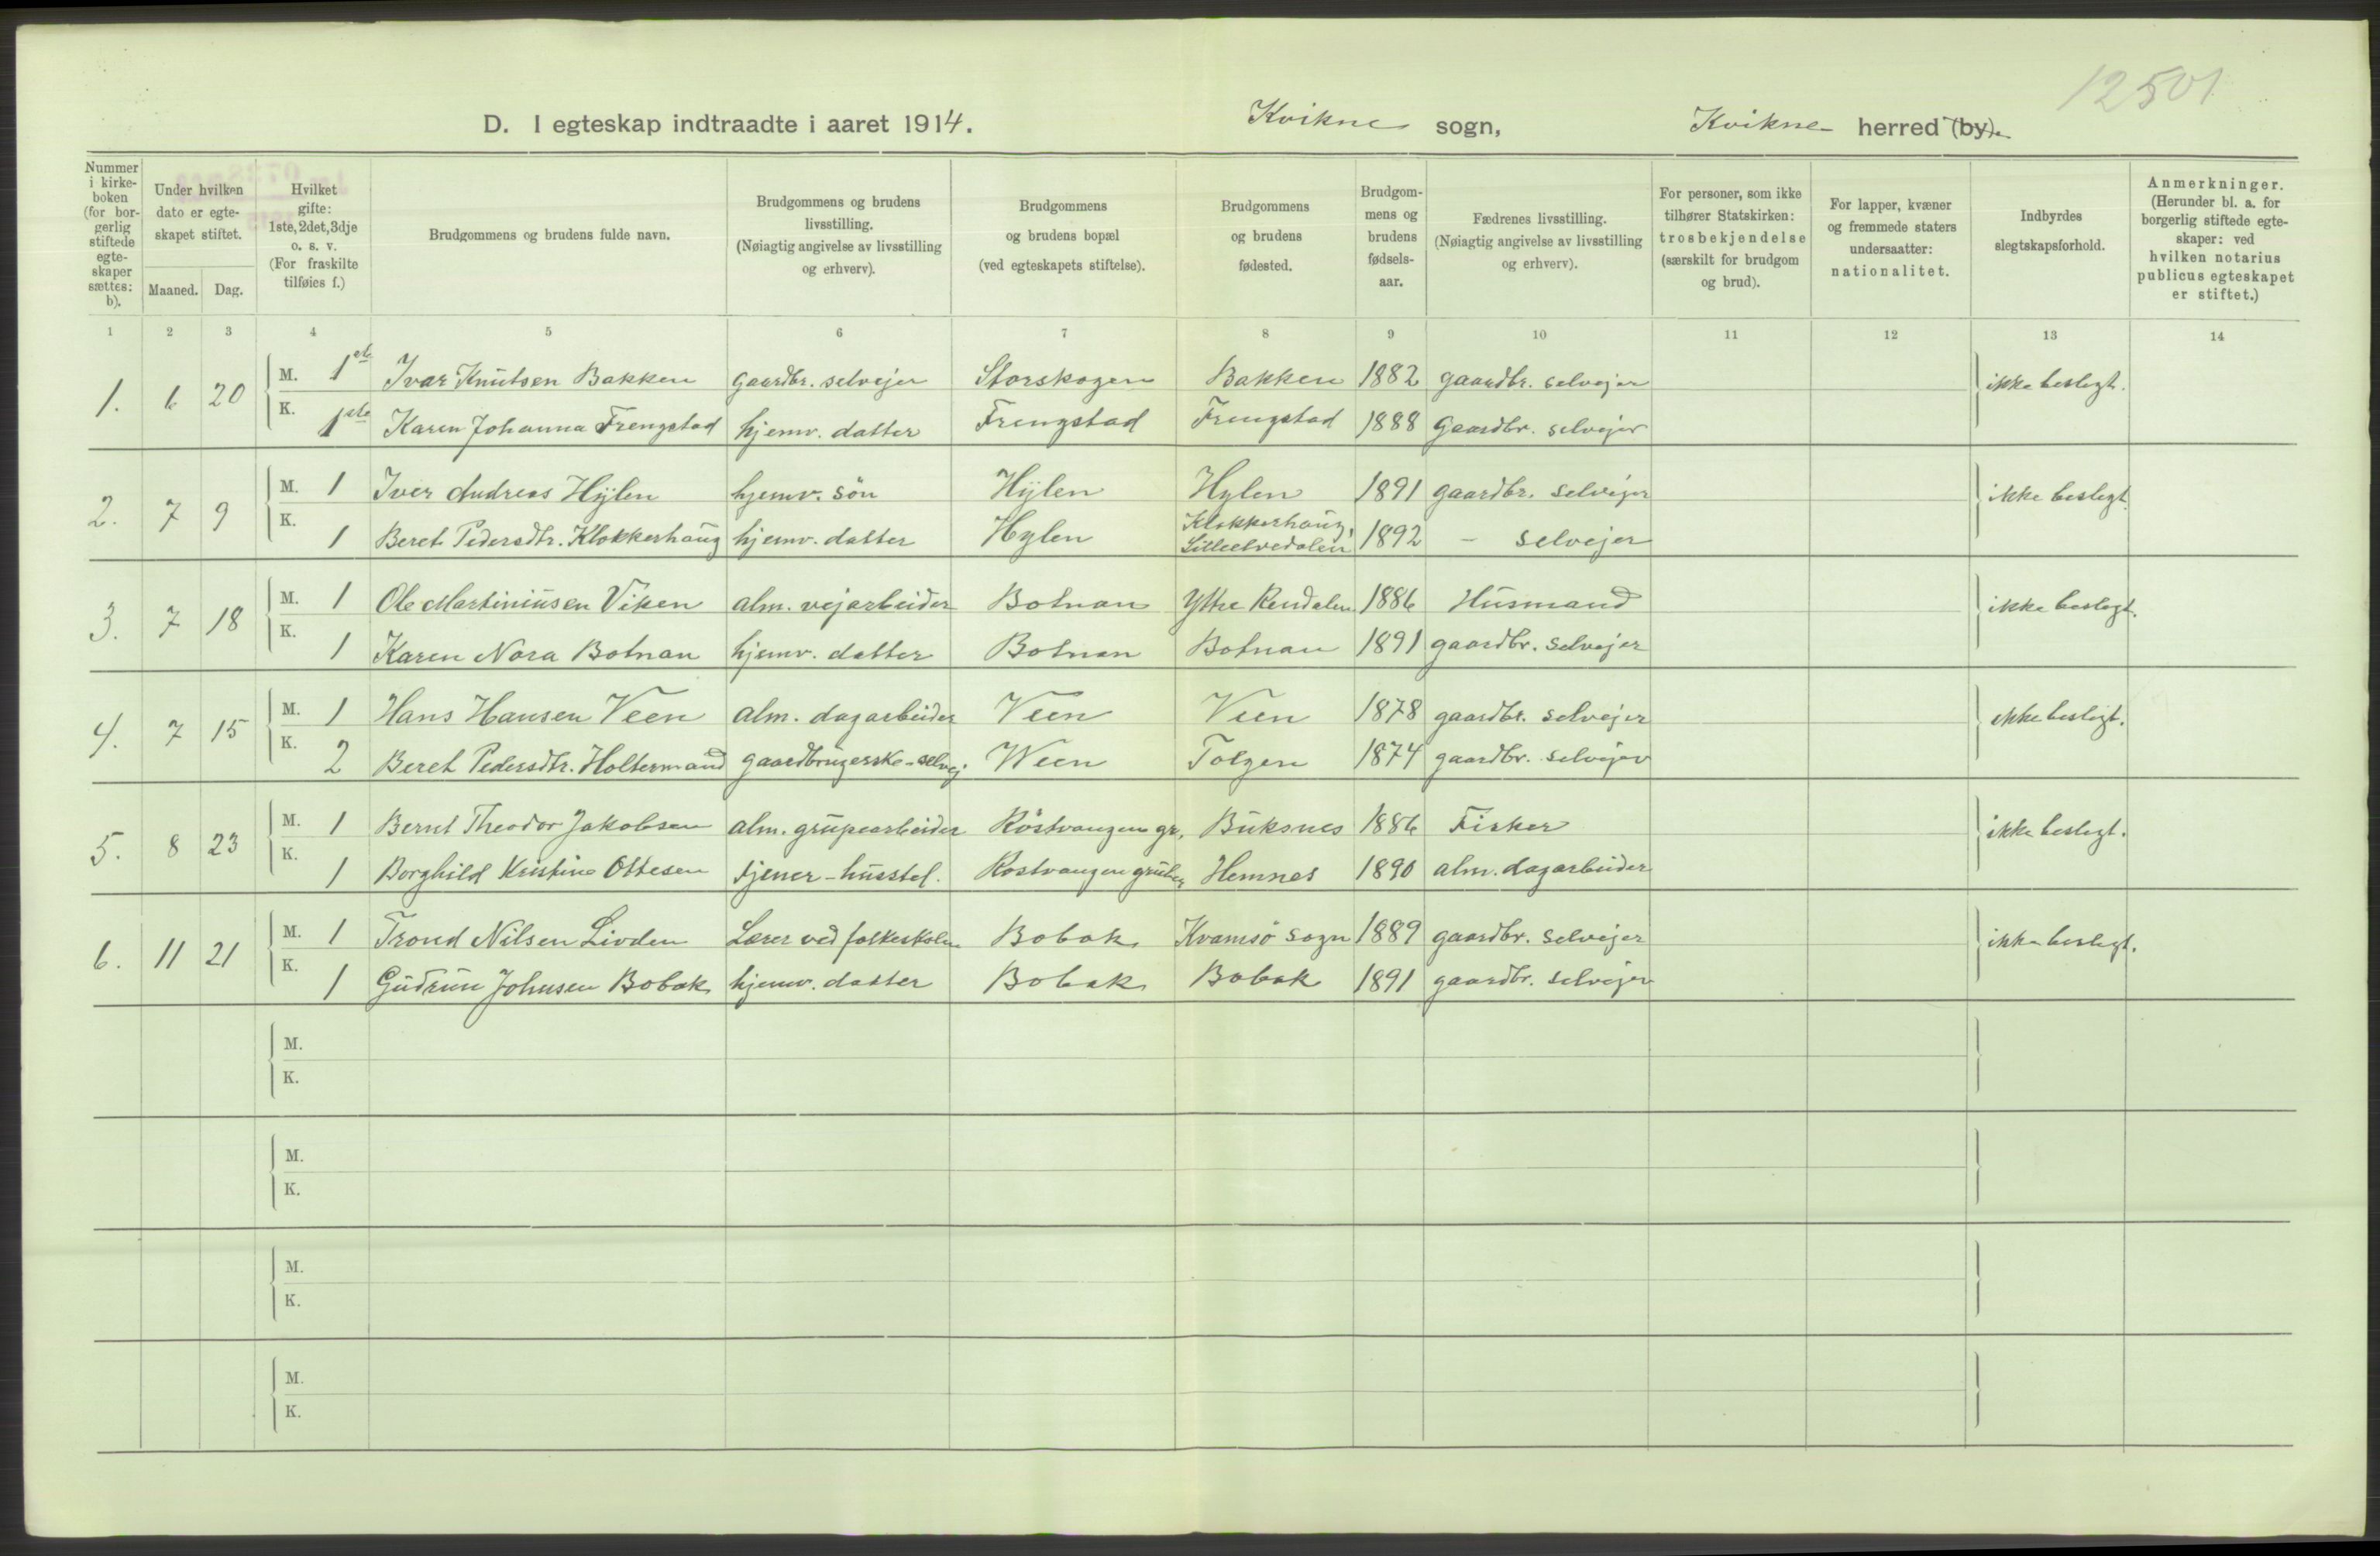 12501
D. I egteskap indtraadte i aaret 1914. Kvikne sogn, Kvikne herred (by).
Nummer i kirkeboken (for borgerlig stiftede egteskaper sættes: b).
Under hvilken dato er egteskapet stiftet.
Maaned. Dag.
Hvilket gifte: 1ste, 2det, 3dje o. s. v. (For fraskilte tilføies f.)
Brudgommens og brudens fulde navn.
Brudgommens og brudens livsstilling. (Nøiagtig angivelse av livsstilling og erhverv).
Brudgommens og brudens bopæl (ved egteskapets stiftelse).
Brudgommens og brudens fødested.
Brudgommens og brudens fødselsaar.
Fædrenes livsstilling. (Nøiagtig angivelse av livsstilling og erhverv).
For personer, som ikke tilhører Statskirken: trosbekjendelse (særskilt for brudgom og brud).
For lapper, kvæner og fremmede staters undersaatter: nationalitet.
Indbyrdes slegtskapsforhold.
Anmerkninger. (Herunder bl. a. for borgerlig stiftede egteskaper: ved hvilken notarius publicus egteskapet er stiftet.)
1 2 3 4 5 6 7 8 9 10 11 12 13 14
1. 6 20 M. 1ste Ivar Knutsen Bakken gaardbr. selvejer Storskogen Bakken 1882 gaardbr. selvejer ikke beslegt.
K. 1ste Karen Johanna Frengstad hjemv. datter Frengstad Frengstad 1888 Gaardbr. selvejer
2. 7 9 M. 1 Iver Andreas Hylen hjemv. søn Hylen Hylen 1891 gaardbr. selvejer ikke beslegt.
K. 1 Beret Pedersdtr. Klokkerhaug hjemv. datter Hylen Klokkerhaug, Lilleelvedalen 1892 - selvejer
3. 7 18 M. 1 Ole Martiniusen Viken alm. vejarbeider Botnan Ytre Rendalen 1886 Husmand ikke beslegt.
K. 1 Karen Nora Botnan hjemv. datter Botnan Botnan 1891 gaardbr. selvejer
4. 7 15 M. 1 Hans Hansen Veen alm. dagarbeider Veen Veen 1878 gaardbr. selvejer ikke beslegt.
K. 2 Beret Pedersdtr. Holtermand gaardbrugerske-selvej. Ween Tolgen 1874 gaardbr. selvejer
5. 8 23 M. 1 Bernt Theodor Jakobsen alm. grupearbeider Röstvangen gr. Buksnes 1886 Fisker ikke beslegt.
K. 1 Borghild Kristine Ottesen tjener-husstel. Röstvangen gruber Hemnes 1890 alm. dagarbeider
6. 11 21 M. 1 Trond Nilsen Livden Lærer ved folkeskolen Bobak Kvamsö sogn 1889 gaardbr. selvejer ikke beslegt.
K. 1 Gudrun Johnsen Bobak hjemv. datter Bobak Bobak 1891 gaardbr. selvejer
M.
K.
M.
K.
M.
K.
M.
K.